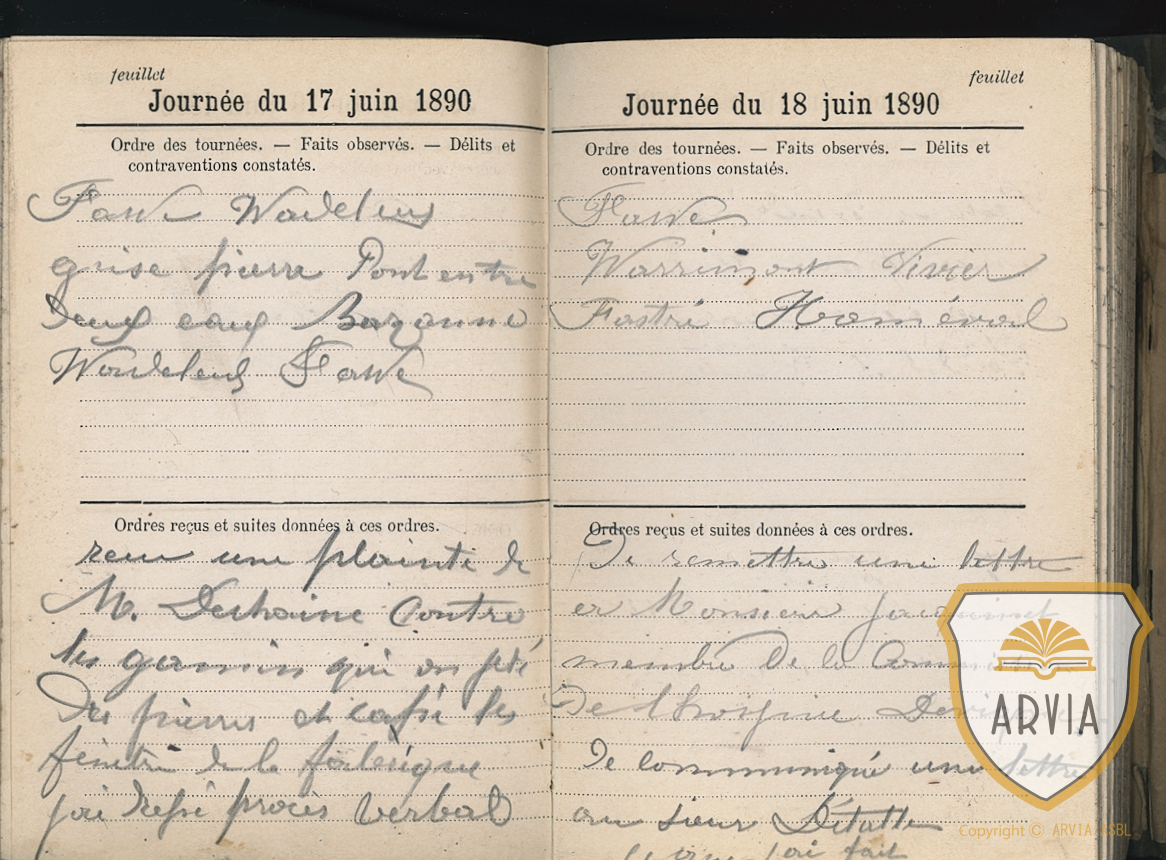 feuillet
Journée du 17 juin 1890
Ordre des tournées. — Faits observés. — Délits et
contraventions constatés.
Fawe Wadeleux
grise pierre Pont entre
Deux eaux Bazanne
Wadeleux Fawe
Ordres reçus et suites données à ces ordres.
recu une plainte de
M. Dechaine Contre
les gamin qui on jeté
Des pierres et cassé les
fenetre de la fabrique
jai dressé procès verbal
feuillet
Journée du 18 juin 1890
Ordre des tournées. — Faits observés. — Délits et
contraventions constatés.
Fawe
Warrimont Vivier
Fastré Homvéval
Ordres reçus et suites données à ces ordres.
De remettre une lettre
a Monsieur
membre De la
De lhospice
De communiqué une lettre
au sieur
jai fait
ARVIA
Copyright © ARVIA ASBL